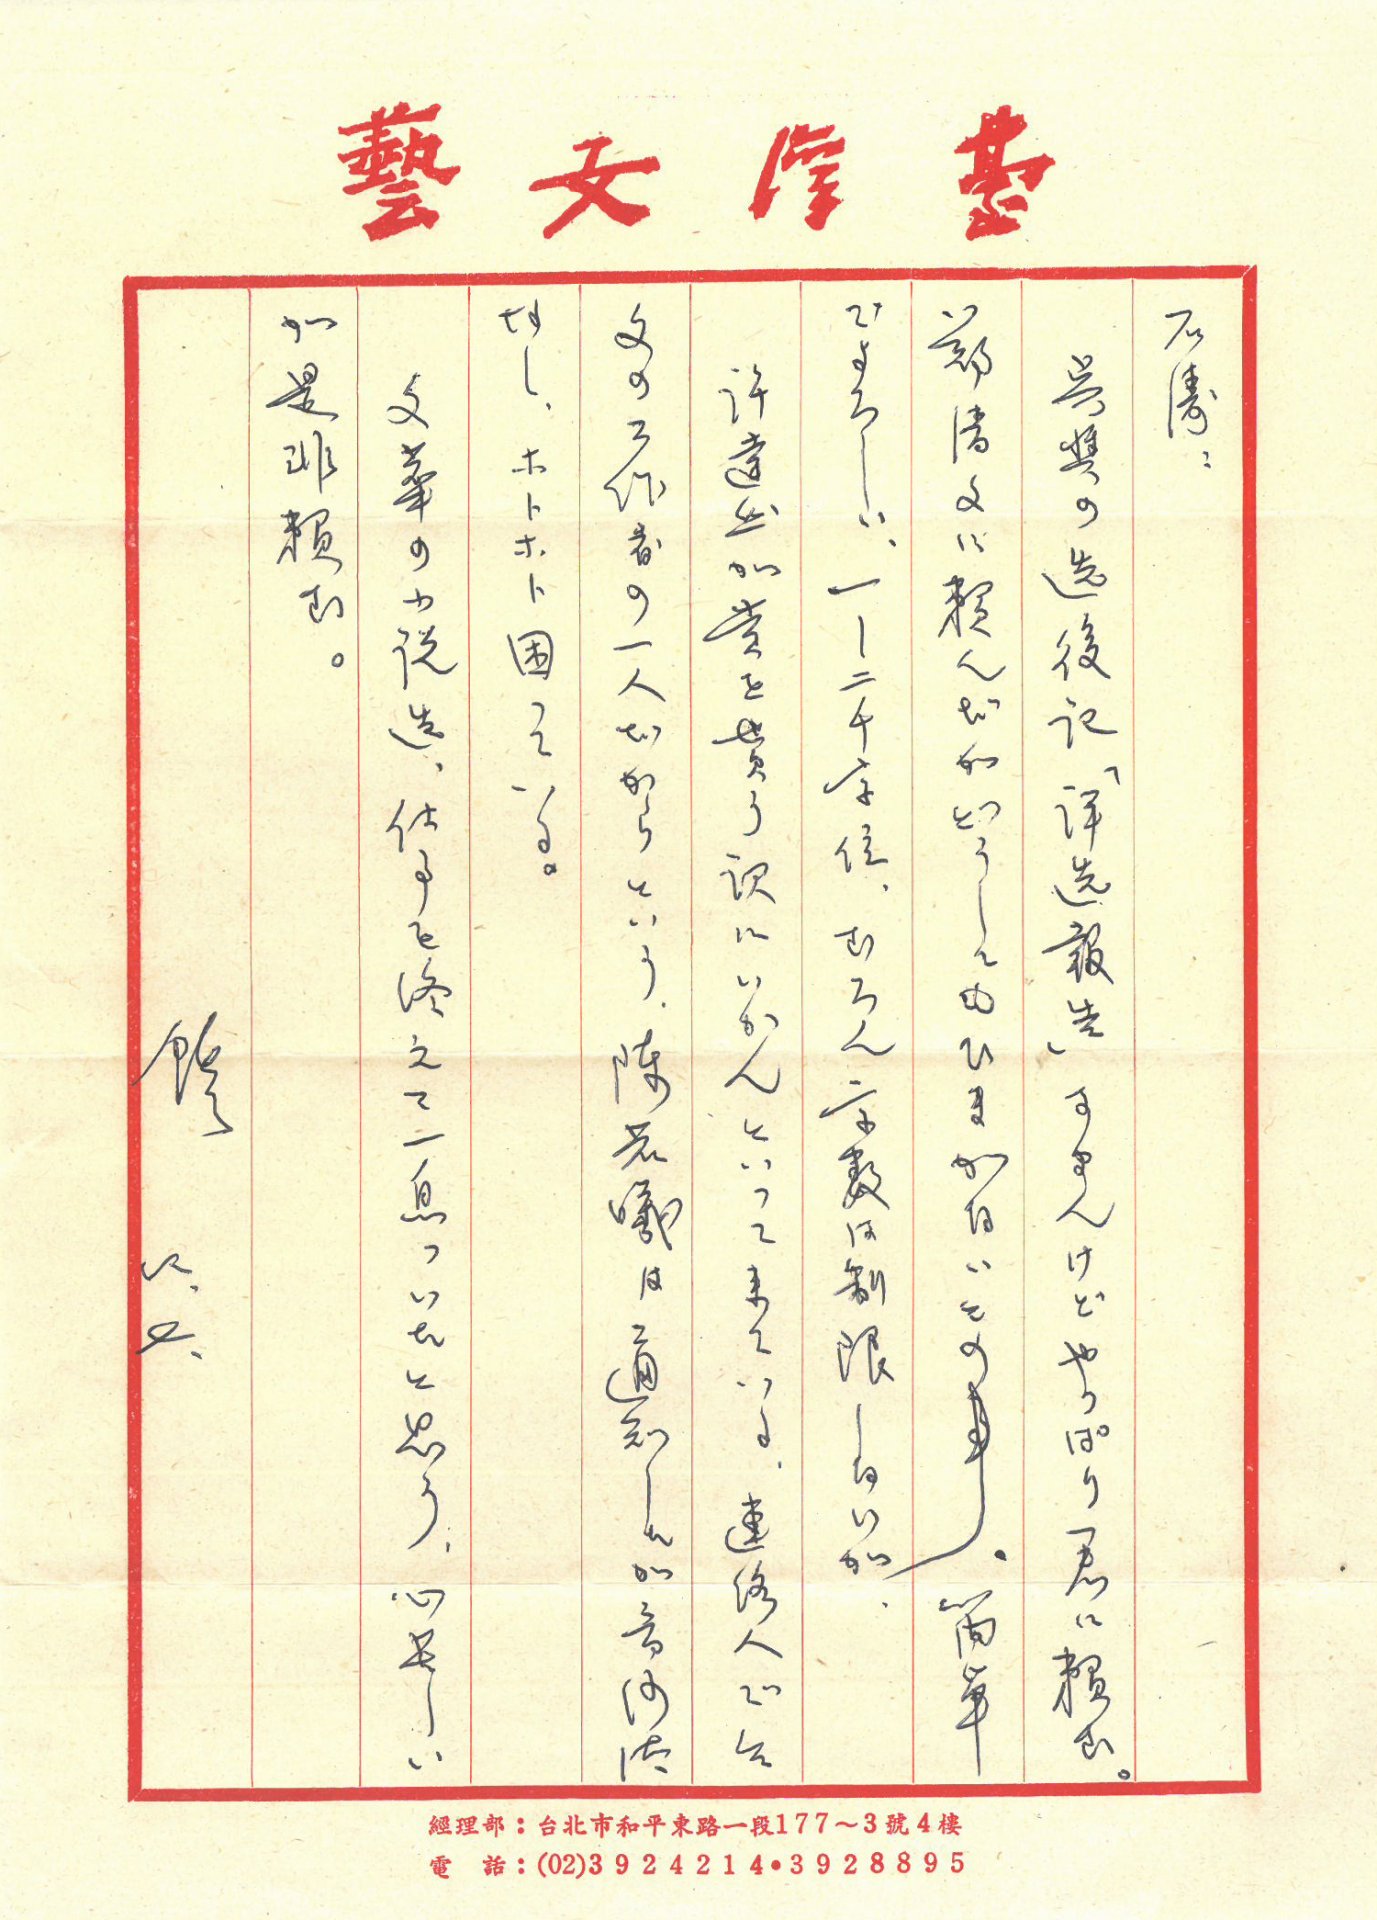 臺灣文藝
石濤:
吳奨の选後記「評选報告」すまんけどやっぱり君に賴む。
鄭清文に賴んだがどうしてもひまがないとの事。简単
でよろしい、一～二千字位、むろん字数は制限しないが、
許達然が賞を貰う訳にいかんといって来ている、連絡人で台
文の工作者の一人だからという、陳若曦は通知したが音沙汰
なし、ホトホト困っている。
文華の小説选、仕事を終えて一息ついたと思う、心苦しい
が是非賴む。
経理部：台北市和平東路一段177～3號4樓
電　話：(02)3924214•3928895